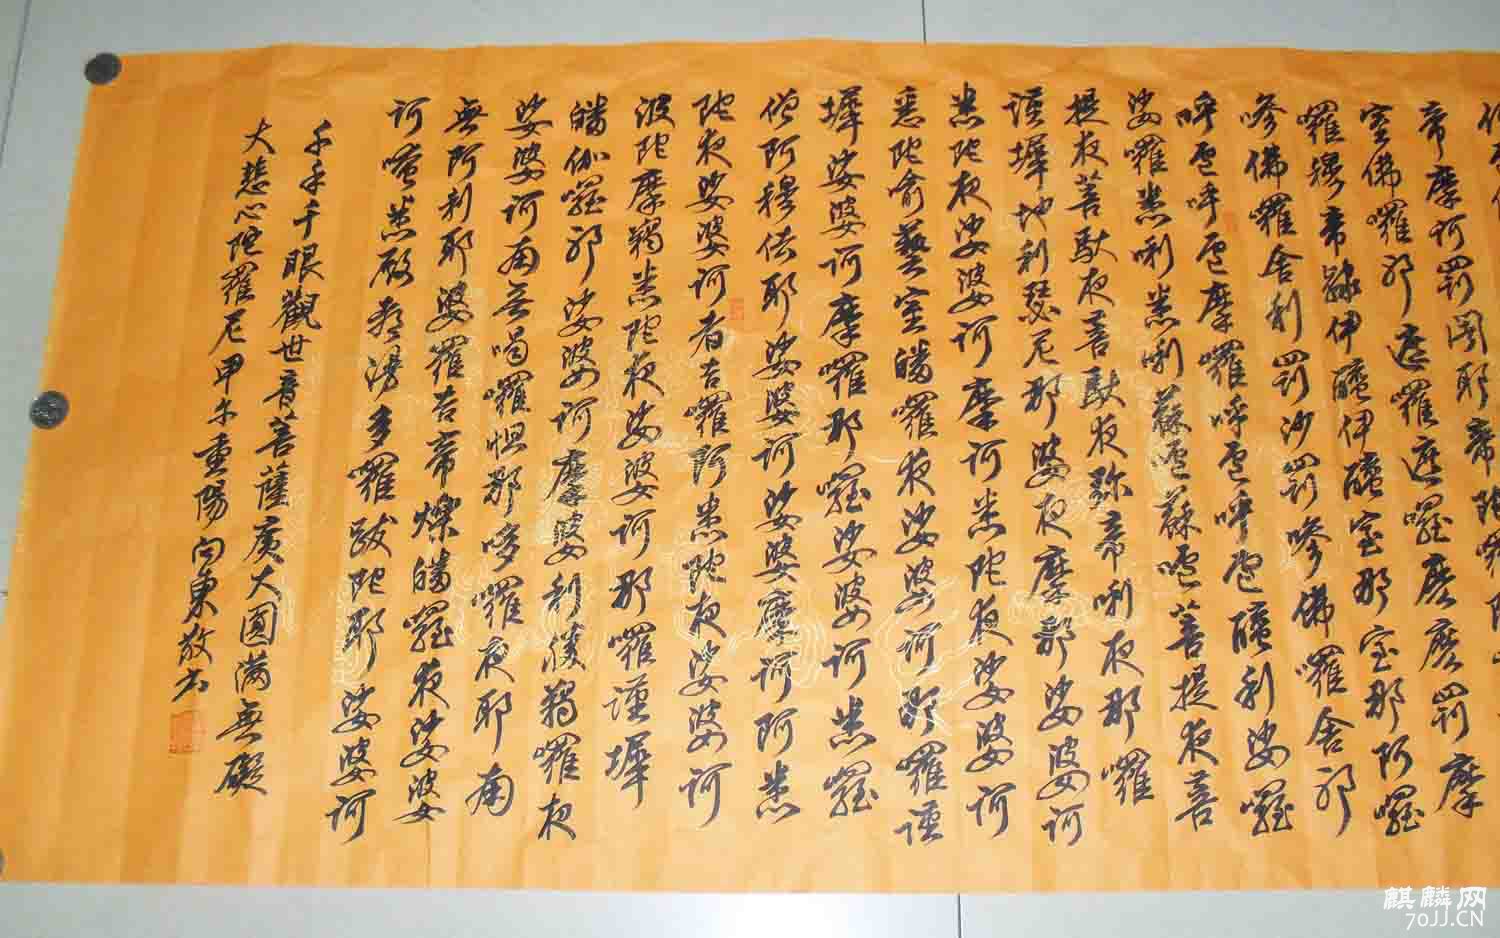 帝摩訶罰闍耶帝陀囉
室佛囉耶遮囉遮囉麼麼罰摩
囉穆帝隸伊醯伊醯室那室那阿囉
嘇佛囉舍利罰沙罰嘇佛囉舍耶
呼嚧呼嚧摩囉呼嚧呼嚧醯利娑囉
娑囉悉唎悉唎蘇嚧蘇嚧菩提夜菩
提夜菩馱夜菩馱夜弥帝唎夜那囉
謹墀地利瑟尼那婆夜摩那娑婆訶
悉陀夜娑婆訶摩訶悉陀夜娑婆訶
悉陀喻藝室皤囉夜娑婆訶那囉謹
墀娑婆訶摩囉那囉娑婆訶悉囉
僧阿穆佉耶娑婆訶娑婆摩訶阿悉
陀夜娑婆訶者吉囉阿悉陀夜娑婆訶
波陀摩羯悉陀夜娑婆訶那囉謹墀
皤伽囉耶娑婆訶摩婆利勝羯囉夜
娑婆訶南無喝囉怛那哆囉夜耶南
無阿利耶婆羅吉帝爍皤囉夜娑婆
訶唵悉殿都漫多囉跋陀耶娑婆訶
千手千眼觀世音菩薩廣大圓滿無礙
大悲心陀羅尼甲午重陽向東敬书
麒麟网
70JJ.CN